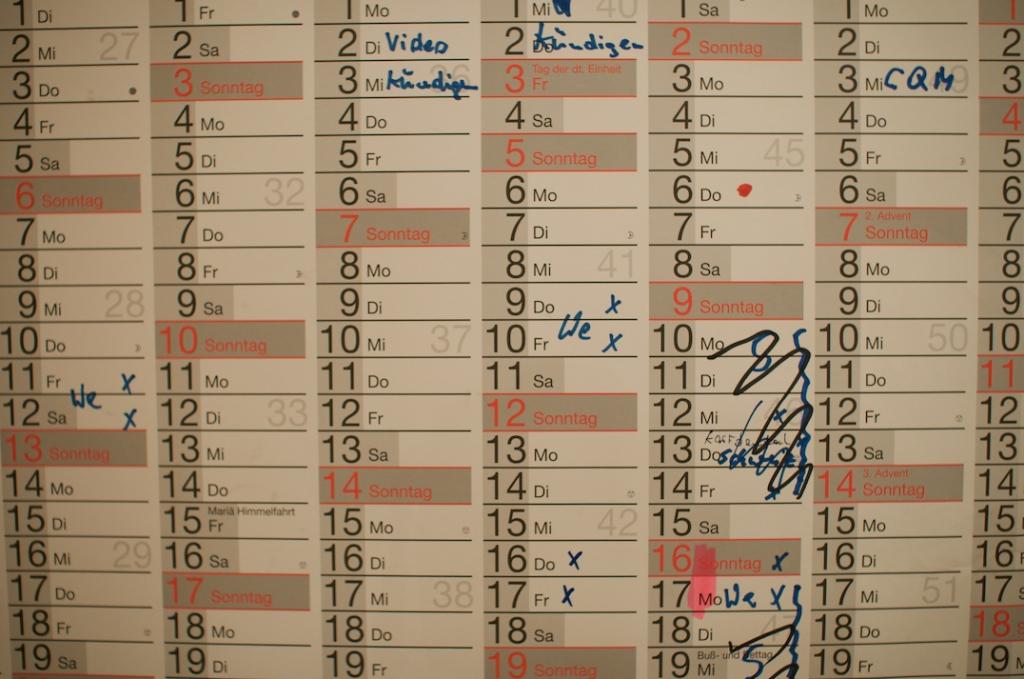 1 Di
2 Mi 27
3 Do
4 Fr
5 Sa
6 Sonntag
7 Mo
8 Di
9 Mi 28
10 Do
11 Fr x
We
12 Sa x
13 Sonntag
14 Mo
15 Di
16 Mi 29
17 Do
18 Fr
19 Sa
1 Fr
2 Sa
3 Sonntag
4 Mo
5 Di
6 Mi 32
7 Do
8 Fr
9 Sa
10 Sonntag
11 Mo
12 Di 33
13 Mi
14 Do
15 Mariä Himmelfahrt
Fr
16 Sa
17 Sonntag
18 Mo
19 Di
1 Mo
2 Di Video
3 Mi kündigen 36
4 Do
5 Fr
6 Sa
7 Sonntag
8 Mo
9 Di
10 Mi 37
11 Do
12 Fr
13 Sa
14 Sonntag
15 Mo
16 Di
17 Mi 38
18 Do
19 Fr
1 Mi 40
2 Do kündigen
3 Tag der dt. Einheit
Fr
4 Sa
5 Sonntag
6 Mo
7 Di
8 Mi 41
9 Do x
We
10 Fr x
11 Sa
12 Sonntag
13 Mo
14 Di
15 Mi 42
16 Do x
17 Fr x
18 Sa
19 Sonntag
1 Sa
2 Sonntag
3 Mo
4 Di
5 Mi 45
6 Do
7 Fr
8 Sa
9 Sonntag
10 Mo
11 Di
12 Mi x
13 Do
14 Fr x
15 Sa
16 Sonntag x
17 Mo We x
18 Di
19 Buß- und Bettag
Mi
1 Mo
2 Di
3 Mi CQM
4 Do
5 Fr
6 Sa
7 2. Advent
Sonntag
8 Mo
9 Di
10 Mi 50
11 Do
12 Fr
13 Sa
14 3. Advent
Sonntag
15 Mo
16 Di
17 Mi 51
18 Do
19 Fr
1
2
3
4
5
6
7
8
9
10
11
12
13
14
15
16
17
18
19